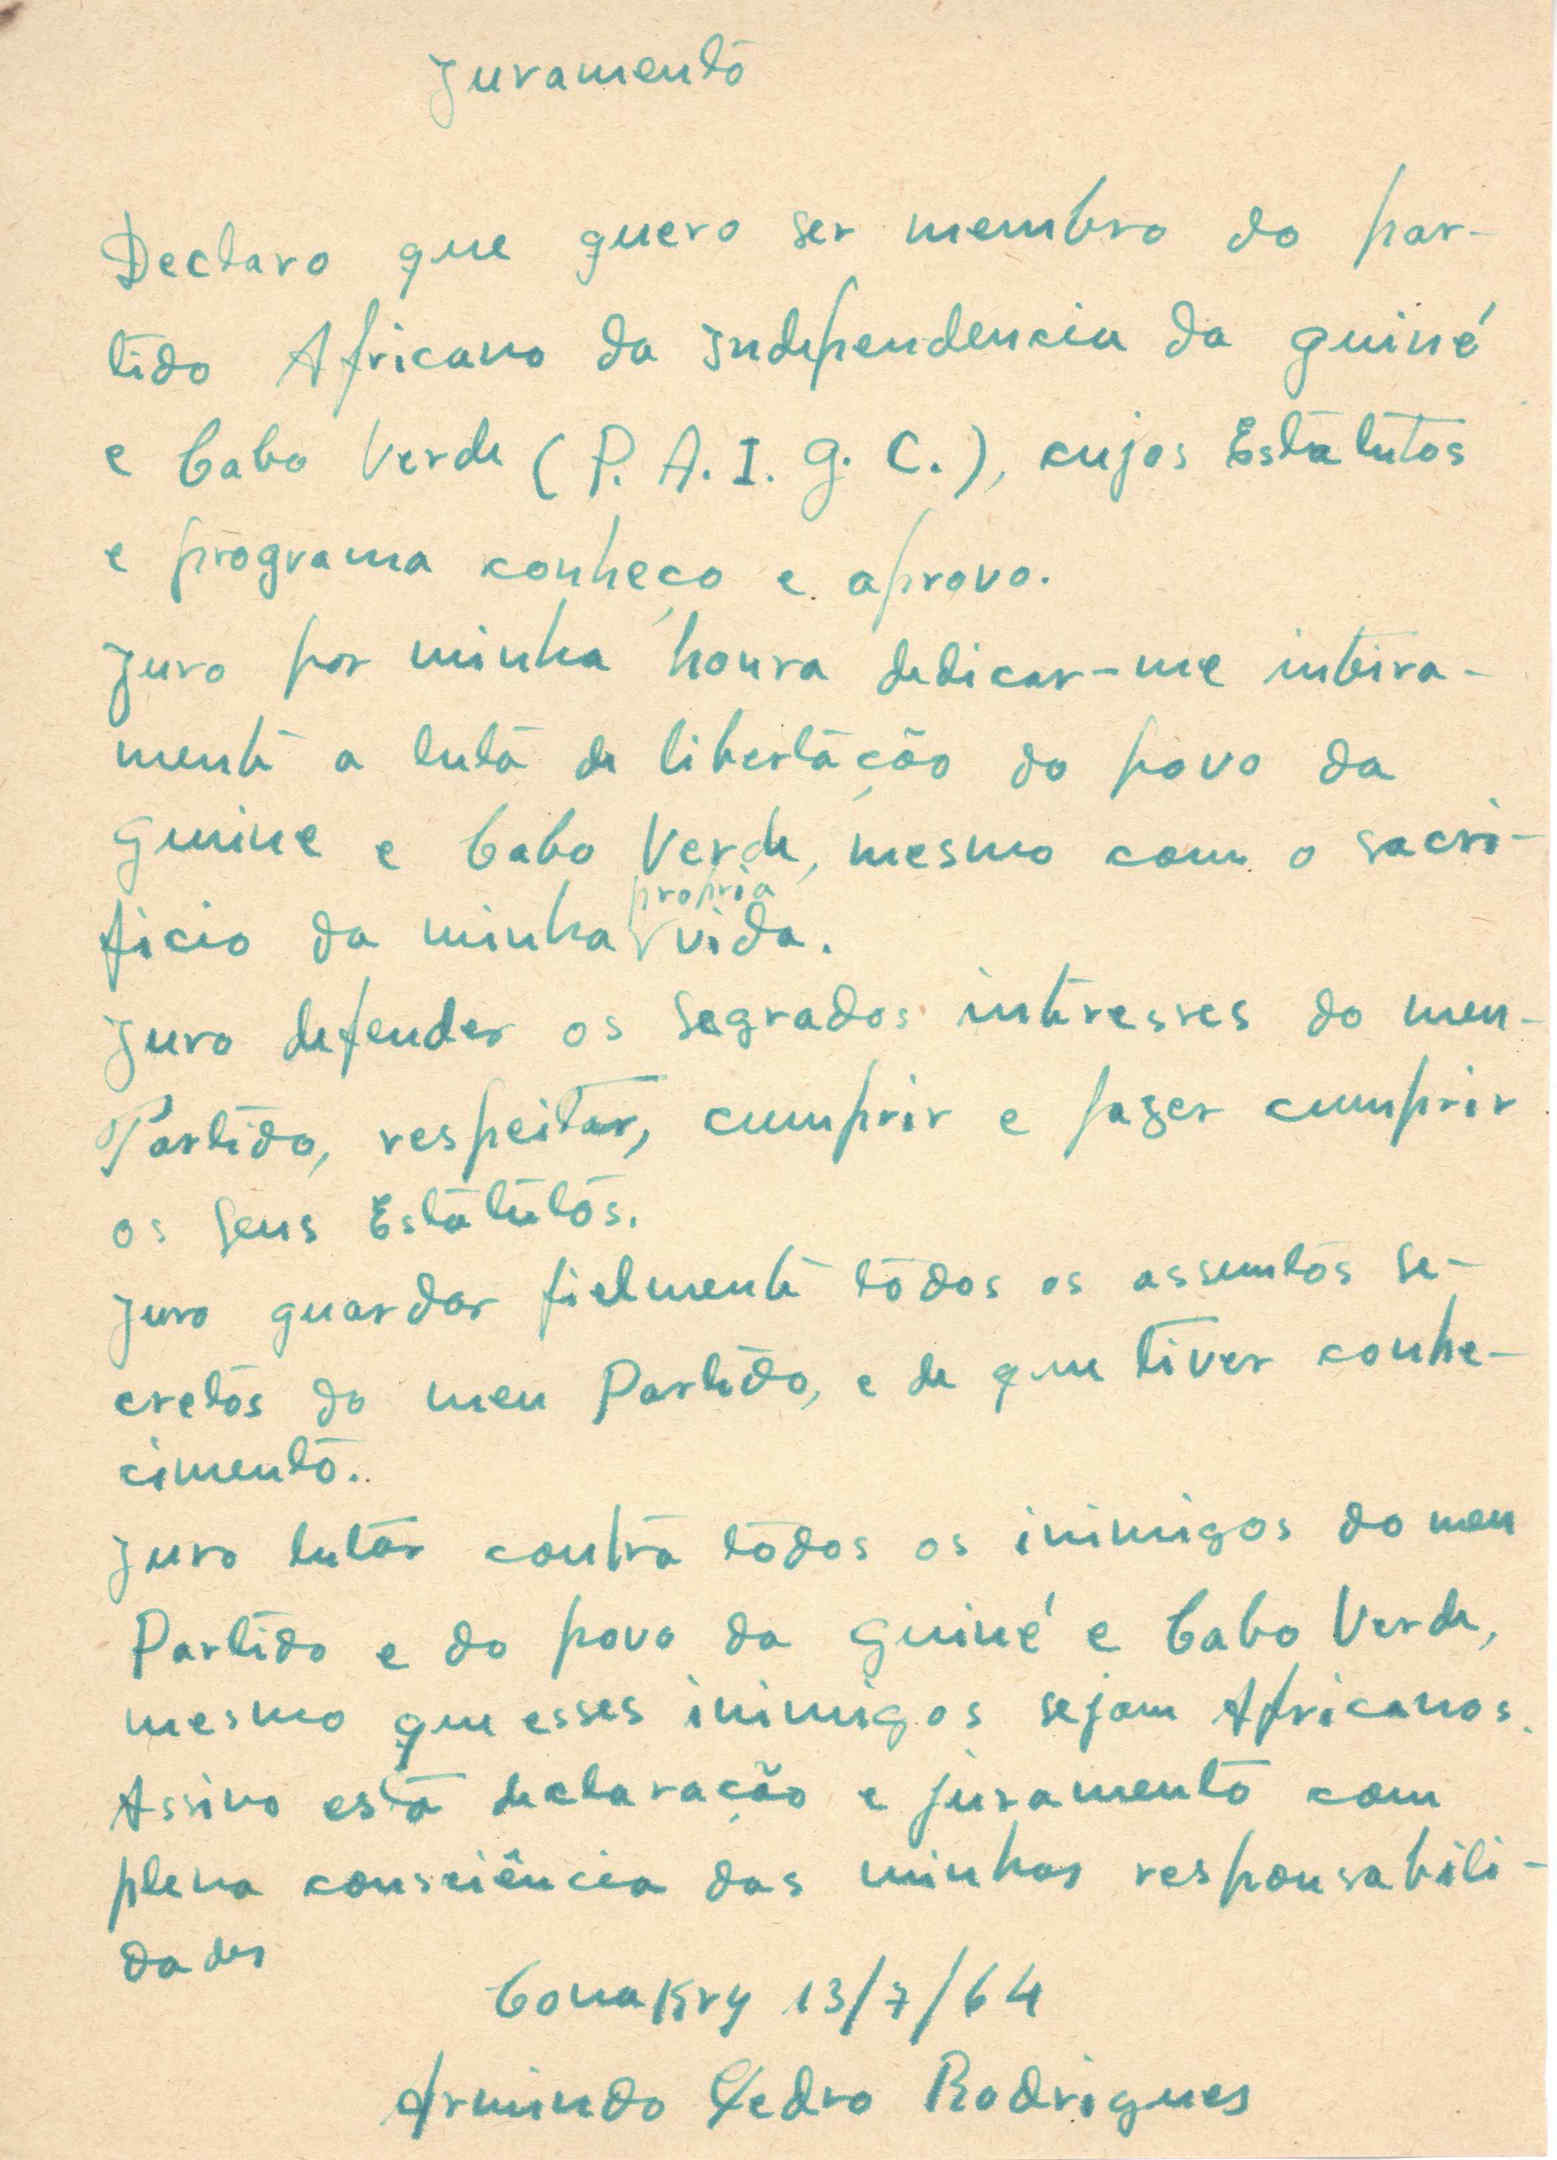 Juramento
Declaro que quero ser membro do par-
tido Africano da Independencia da Guiné
e Cabo Verde (P. A. I. G. C.), cujos Estatutos
e programa conheço e aprovo.
Juro por minha honra dedicar-me inteira-
mente a luta de libertação do povo da
Guine e Cabo Verde, mesmo com o sacri-
propria
ficio da minha vida.
Juro defender os Segrados interesses do meu
Partido, respeitar, cumprir e fazer cumprir
os Seus Estatutos.
Juro guardar fielmente todos os assuntos Se-
cretos do meu Partido, e de que tiver conhe-
cimento.
Juro lutar contra todos os inimigos do meu
Partido e do povo da Guiné e Cabo Verde,
mesmo que esses inimigos sejam Africanos.
Assino esta declaração e juramento com
plena consciência das minhas responsabili-
dades
Conakry 13/7/64
Armindo Pedro Rodrigues